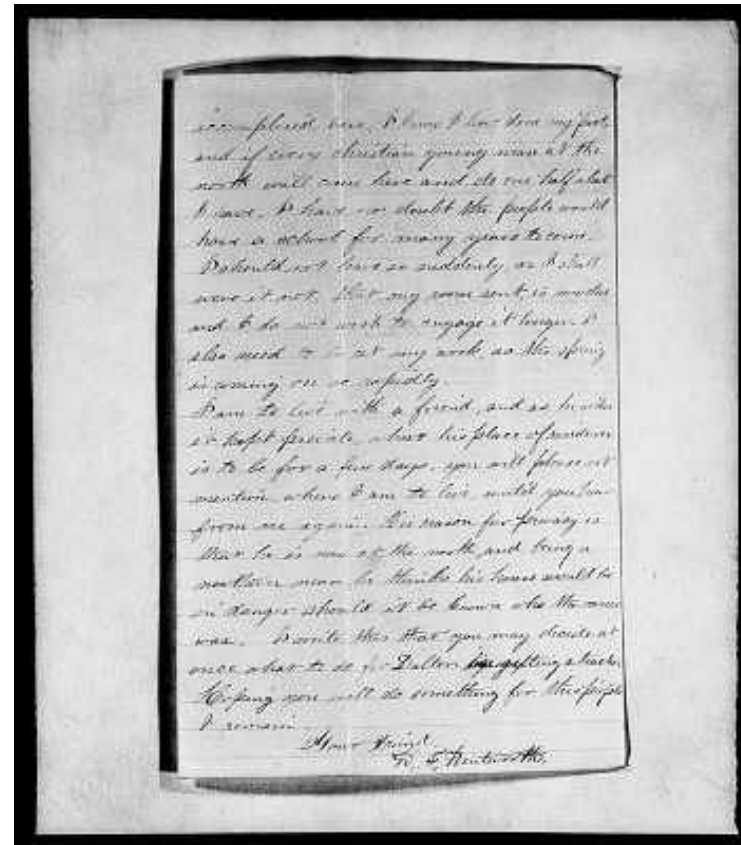 accomplished here, I know I have done my part
and if every christian young man at the
north will come here and do one half what
I have. I have no doubt the people would
have a school for many years to come.
I should not leave so suddenly as I shall
were it not that my room rent is
and I do not wish to engage it longer. I
also need to be at my work as the spring
is coming on so rapidly.
I am to live with a friend, and as he wishes
it kept private where his place of residence
is to be for a few days, you will please not
mention where I am to live until you hear
from me again. His reason for privacy is
that he is now at the north and being a
northern man he thinks his house would be
in danger should it be known who the owner
was. I write this that you may decide at
once what to do for Dalton in getting a teacher
Hoping you will do something for this people
I remain
Your friend
Wentworth.